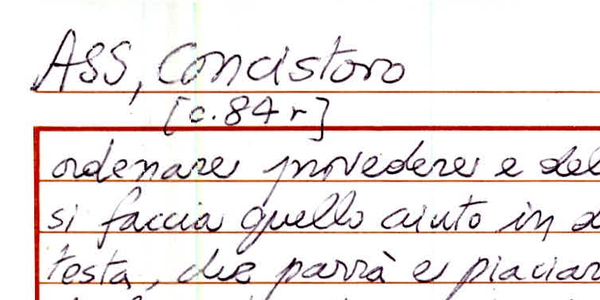 ASS, Concistoro
[c.84r]
ordenare provedere e del
si faccia quello aiuto in
testa, che parrà e piaciar